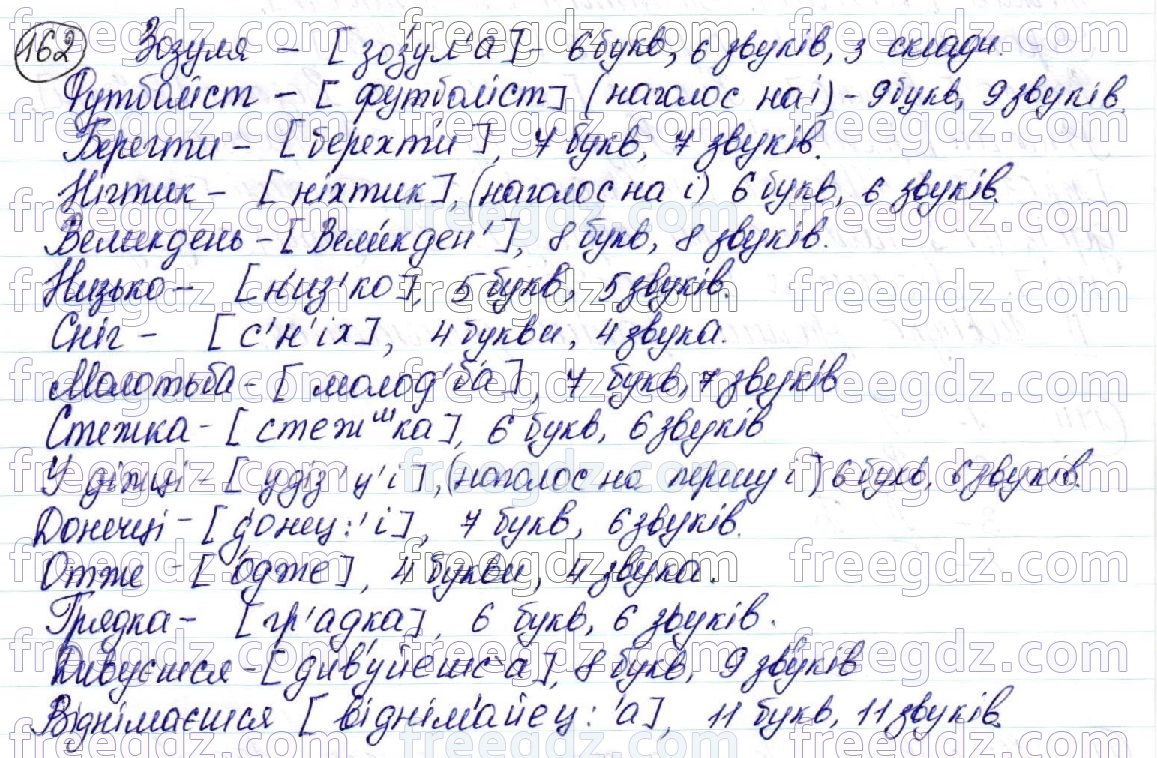 162 Зозуля – [зозул'а] – 6 букв, 6 звуків, 3 склади.
Футболіст – [футболіст] (наголос на і) – 9 букв, 9 звуків.
Берегти – [берехти], 7 букв, 7 звуків.
Нігтик – [ніхтик], (наголос на і) 6 букв, 6 звуків.
Великдень – [Великден'], 8 букв, 8 звуків.
Низько – [низ'ко], 5 букв, 5 звуків.
Сніг – [с'н'іх], 4 букви, 4 звука.
Молотьба – [молод'ба], 7 букв, 7 звуків
Стежка – [стежшка], 6 букв, 6 звуків
У діжці – [удіз'ц'і], (наголос на першу і) 6 букв, 6 звуків.
Донечці – [донец:'і], 7 букв, 6 звуків.
Отже – [одже], 4 букви, 4 звука.
Грядка – [гр'адка], 6 букв, 6 звуків.
Дивуєшся – [дивуйешс'а], 8 букв, 9 звуків
Віднімаєшся [віднімайец:'а], 11 букв, 11 звуків.
freegdz.com